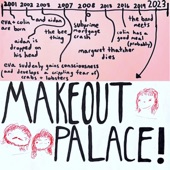 2001 2002 2003 2005 2007 2008 2013 2015 2016 2019 2023!
eva + colin
are born
and aidan
aidan is
dropped on
his head
the bee
thing
subprime
mortgage
crash
margaret thatcher
dies
colin has a
good meal
(probably)
the band
meets
eva suddenly gains consciousness
(and develops a crippling fear of
crabs + lobsters)
MAKEOUT
PALACE!